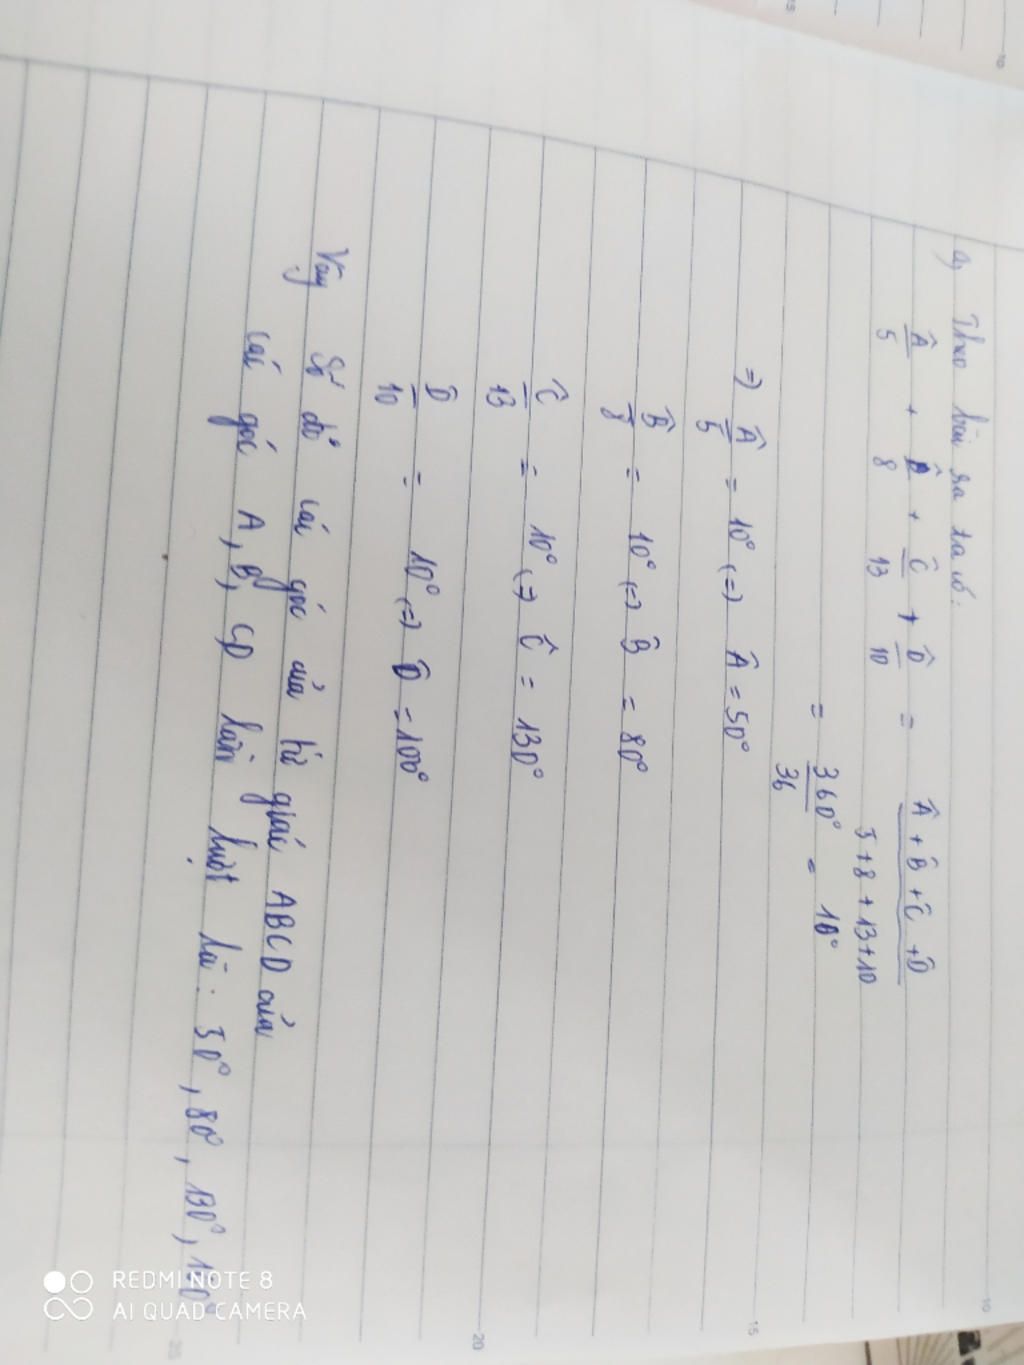 a, Theo bài ra ta có:
Â/5 + B̂/8 + Ĉ/13 + D̂/10 = Â + B̂ + Ĉ + D̂/5+8+13+10
= 360°/36 = 10°
=) Â/5 = 10° (=) Â = 50°
B̂/8 = 10° (=) B̂ = 80°
Ĉ/13 = 10° (=) Ĉ = 130°
D̂/10 = 10° (=) D̂ = 100°
Vậy số đo các góc của tứ giác ABCD của
các góc A, B, CD lần lượt là: 50°, 80°, 130°, 100°
REDMI NOTE 8
AI QUAD CAMERA
10
15
20